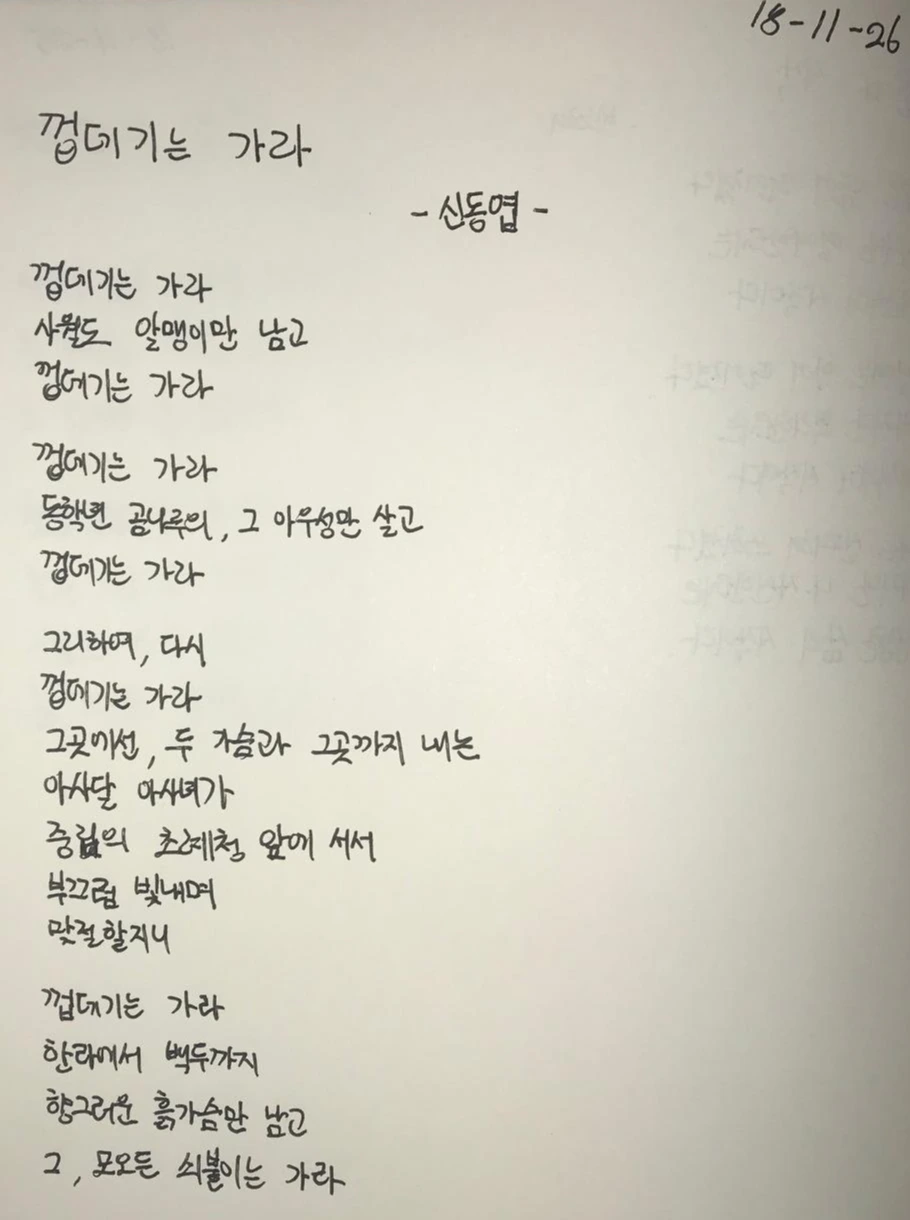 18-11-26
껍데기는 가라
- 신동엽 -
껍데기는 가라
사월도 알맹이만 남고
껍데기는 가라
껍데기는 가라
동학년 곰나루의, 그 아우성만 살고
껍데기는 가라
그리하여, 다시
껍데기는 가라
그곳에선, 두 가슴과 그곳까지 내논
아사달 아사녀가
중립의 초례청 앞에 서서
부끄럼 빛내며
맞절할지니
껍데기는 가라
한라에서 백두까지
향그러운 흙가슴만 남고
그, 모오든 쇠붙이는 가라